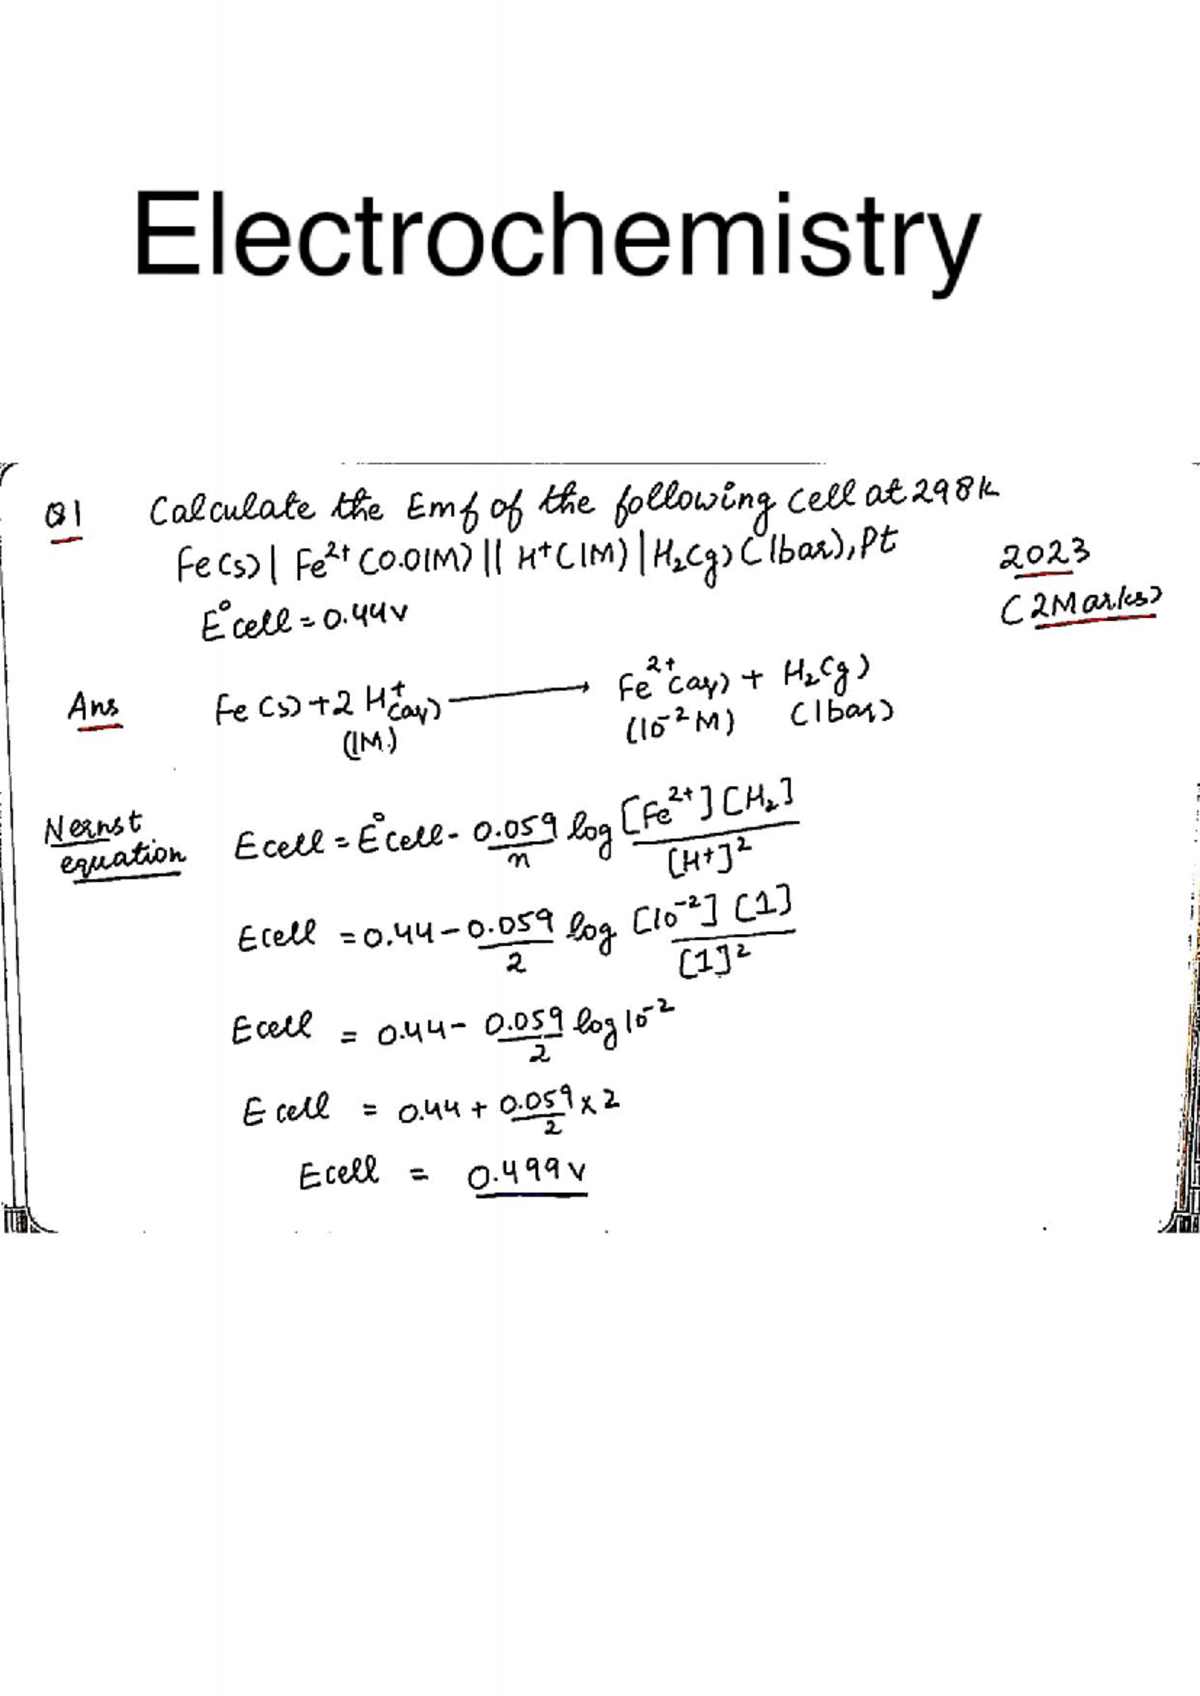 Electrochemistry
Q1 Calculate the Emf of the following cell at 298K
Fe(s) | Fe²⁺ (0.01M) || H⁺(1M) | H₂(g) (1bar), Pt
2023
E°cell = 0.44v
(2Marks)
Ans Fe(s) + 2H⁺(aq) ⟶ Fe²⁺(aq) + H₂(g)
(1M) (10⁻²M) (1bar)
Nernst equation Ecell = E°cell - 0.059/n log [Fe²⁺][H₂]/[H⁺]²
Ecell = 0.44 - 0.059/2 log [10⁻²][1]/[1]²
Ecell = 0.44 - 0.059/2 log 10⁻²
Ecell = 0.44 + 0.059/2 x 2
Ecell = 0.499v